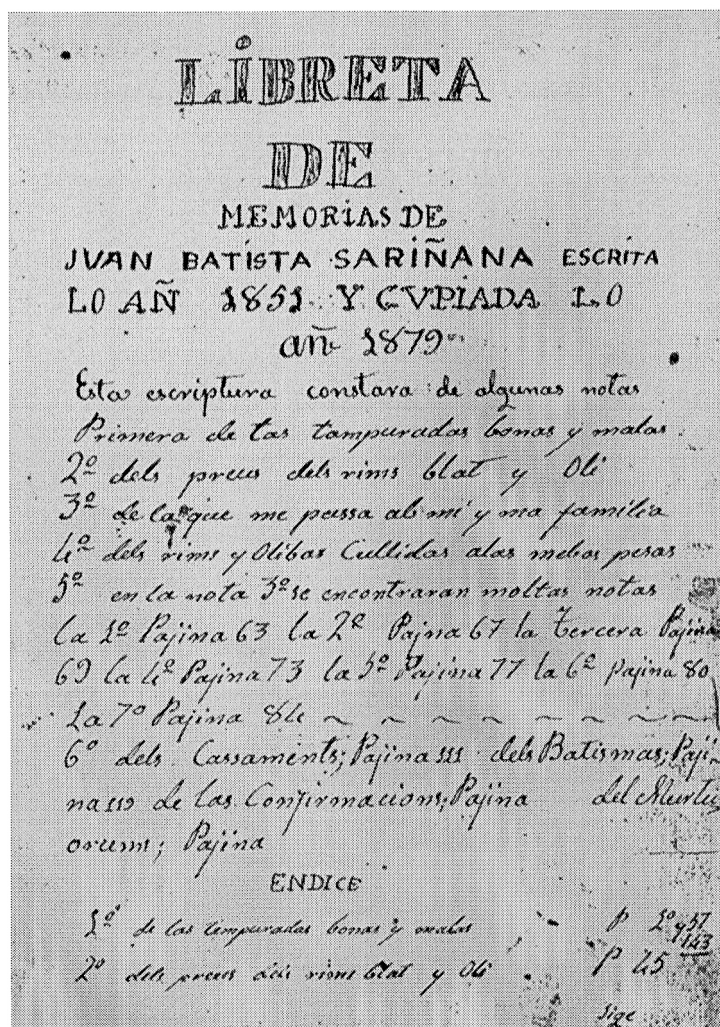 LIBRETA
DE
MEMORIAS DE
JVAN BATISTA SARIÑANA ESCRITA
LO AÑ 1851 Y CVPIADA LO
añ 1879
Esta escriptura constara de algunas notas
Primera de las tampuradas bonas y malas
2º dels preus dels rims blat y Oli
3º de la que me passa al mi y ma familia
4º dels rims y Olibas Cullidas alas mebas pesas
5º en la nota 3º se encontraran moltas notas
la 1º Pajina 63 la 2º Pajna 67 la tercera Pajina
69 la 4º Pajina 73 la 5º Pajina 77 la 6º pajina 80
La 7º Pajina 84 ~ ~ ~ ~ ~ ~ ~
6º dels Cassaments; Pajina 111 dels Batismas; Paji-
na 119 de las Confirmacions; Pajina del Murtu
orums; Pajina
ENDICE
1º de las tempuradas bonas y malas P 1º y 57
143
2º dels preus dels rims blat y Oli P 45
Sige